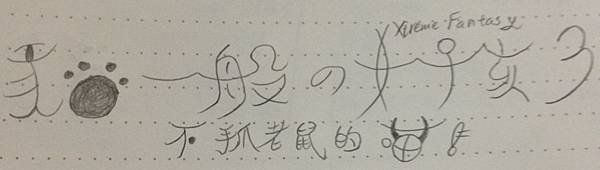 Xtreme Fantasy
一般の女孩3
不抓老鼠的